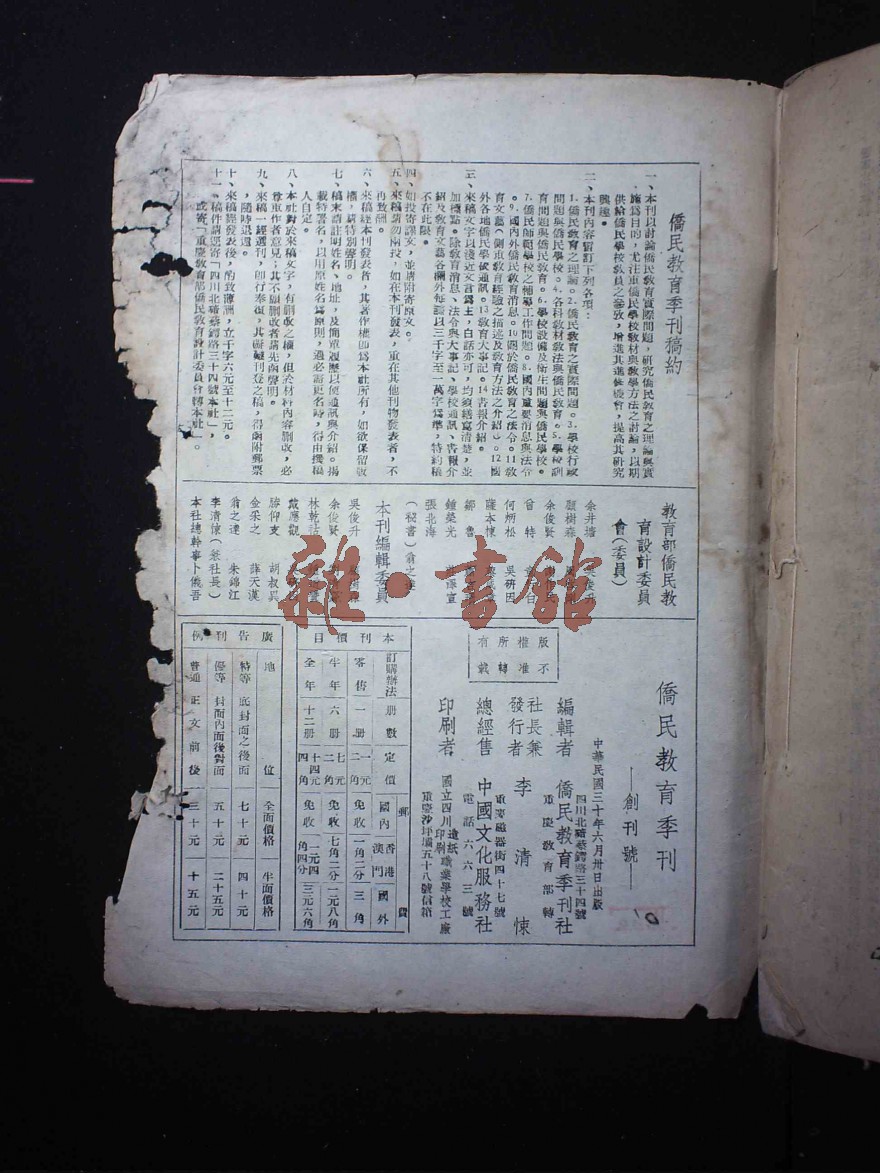 僑民教育季刊稿約
一、本刊以討論僑民教育實際問題，研究僑民教育之理論與實
施為目的，尤注重僑民學校教材與教學方法之討論，以期
供給僑民學校教員之參攷，增進其進修機會，提高其研究
興趣。
二、本刊內容暫訂下列各項：
1.僑民教育之理論。2.僑民教育之實際問題。3.學校行政
問題與僑民學校。4.各科教材教法與僑民教育。5.學校訓
育問題與僑民教育。6.學校設備及衛生問題與僑民學校。
7.僑民師範學校之輔導工作問題。8.國內重要消息與法令
。9.國內外僑民教育消息。10.關於僑民教育之法令。11教
育文藝（側重教育經驗之描述及教育方法之介紹）。12國
外各地僑民學校通訊。13教育大事記。14書報介紹。
三、來稿文字以淺近文言為主，白話亦可，均須繕寫清楚，並
加標點。除教育消息、法令與大事記、學校通訊、書報介
紹及教育文藝各欄外每篇以三千字至一萬字為準，特約稿
不在此限。
四、如投寄譯文，並請附寄原文。
五、來稿請勿兩投，如在本刊發表，重在其他刊物發表者，不
再致酬。
六、來稿經本刊發表者，其著作權即為本社所有，如欲保留版
權，請特別聲明。
七、稿末請註明姓名、地址，及簡單履歷以便通訊與介紹。揭
載時署名，以用原姓名為原則，遇必需更名時，得由撰稿
人自定。
八、本社對於來稿文字，有刪改之權，但於材料內容刪改，必
尊重作者意見；其不願刪改者請先函聲明。
九、來稿一經選刊，即行奉復，其
刊登之稿，得函附郵票
，隨時退還。
十、來稿經發表後，酌致薄酬，立千字六元至十二元。
十一、稿件請逕寄「四川北碚蔡鍔路三十四號本社」，
或寄「重慶教育部僑民教育設計委員會轉本社」。
教育部僑民教
育設計委員
會（委員）
余井塘
顧樹森
余俊賢
曾特
何炳松 吳研因
薩本棟
鄒魯
鍾榮光
張北海
（秘書）翁之達
本刊編輯委員
吳俊升
余俊賢
林乾祜
戴應觀
滕仰支 胡叔異
金采之 薛天漢
翁之達 朱錦江
李清悚（兼社長）
本社總幹事卜儀吾
僑民教育季刊
——創刊號——
中華民國三十年六月卅日出版
四川北碚蔡鍔路三十四號
編輯者 僑民教育季刊社
重慶教育部轉
社長兼
發行者 李清悚
重慶磁器街四十七號
總經售 中國文化服務社
電話六六三號
國立四川造紙印刷職業學校工廠
印刷者
重慶沙坪壩五十八號信箱
版權所有
不准轉載
本刊價目
訂購辦法 冊數 定價 郵費 國內 香港澳門 國外
零售 一冊 一元二角 免收 一角二分 三角
半年 六冊 七元二角 免收 七角二分 一元八角
全年 十二冊 十四元四角 免收 一元四角四分 三元六角
廣告刊例
地位 全面價格 半面價格
特等 底封面之後面 七十元 四十元
優等 封面內面後對面 五十元 二十五元
普通 正文前後 三十元 十五元
雜·書館